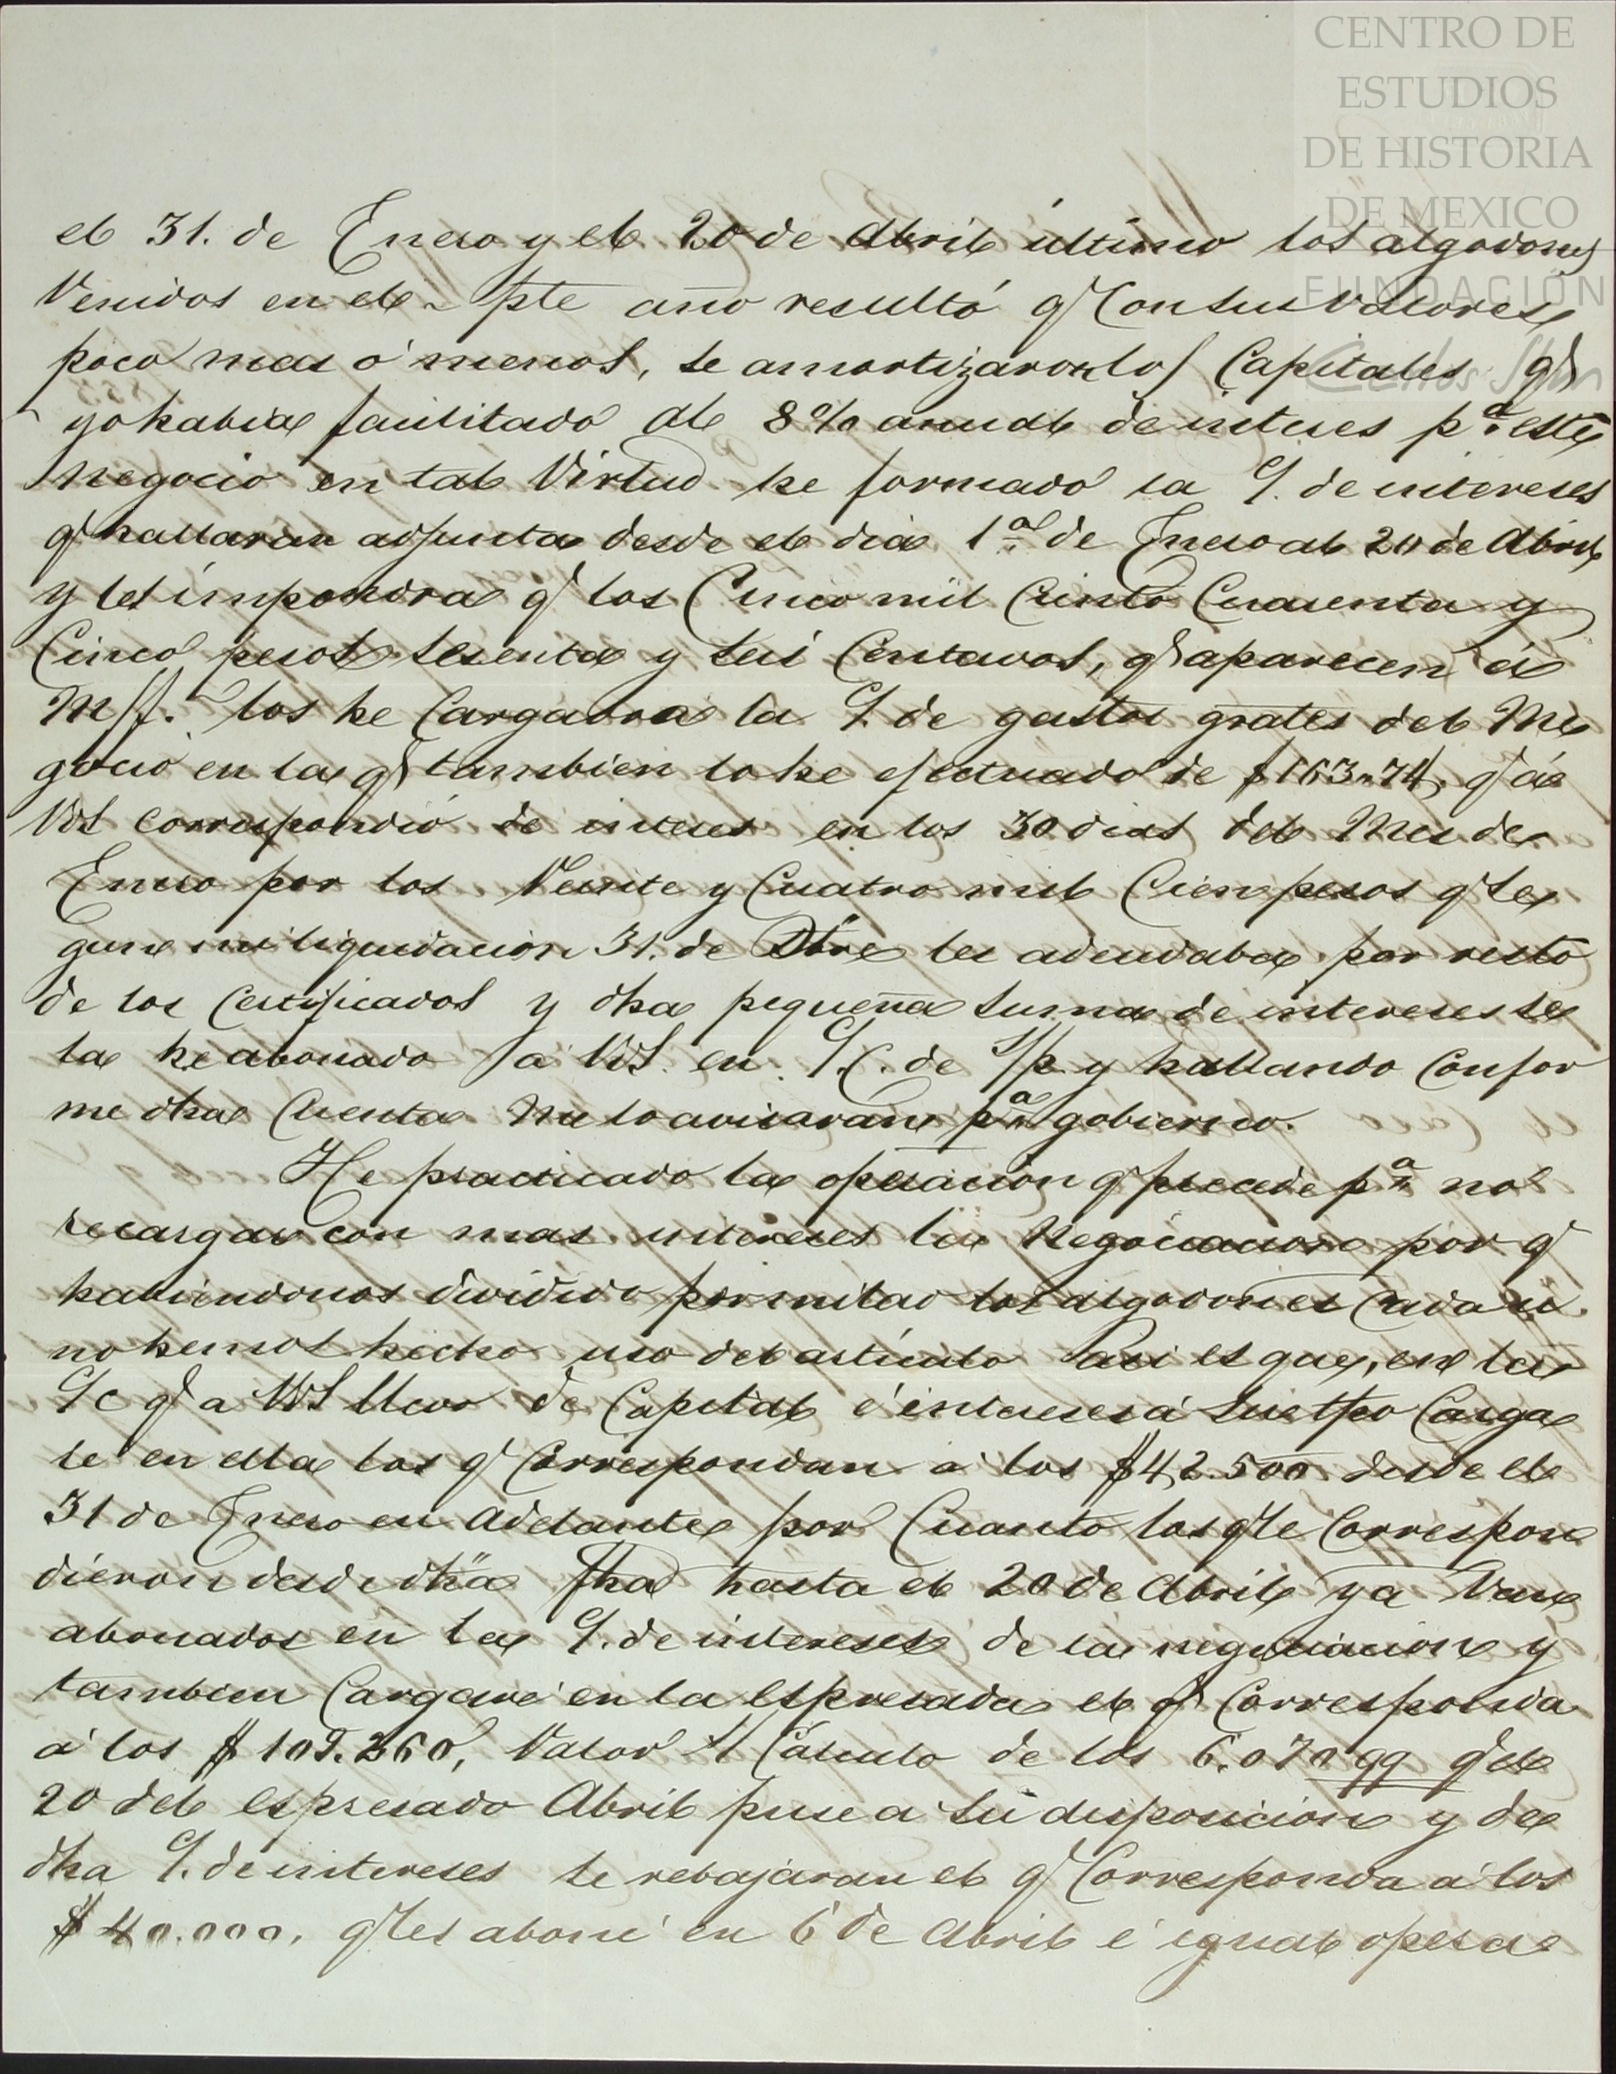 CENTRO DE
ESTUDIOS
DE HISTORIA
DE MEXICO
FUNDACIÓN
Carlos Slim
el 31. de Enero y el 20 de Abril último los algodones
Venidos en el pte año resultó q Con sus Valores
poco mas ó menos, se amortizaron los Capitales q
yo habia facilitado al 8% anual de interes pª este
negocio en tal Virtud he formado la C/. de intereses
q hallarán adjunta desde el dia 1º de Enero al 20 de Abril
y les impondra q los Cinco mil Ciento Cuarenta y
Cinco pesos sesenta y seis Centavos, q aparecen á
M/f. los he Cargado a la C/. de gastos grales del Ne
gocio en la q tambien lo he efectuado de $163.,74, q á
VdS correspondió de interes en los 30 dias del Mes de
Enero por los Veinte y Cuatro mil Cien pesos q se
gun mi liquidacion 31. de Dbre les adeudaba por resto
de los Certificados y dha pequeña suma de intereses se
la he abonado a VdS. en C/C. de S/p y hallando Confor
me dha Cuenta Me lo avisaran pª gobierno.
He practicado la operacion q precede pª no
recargar con mas intereses la Negociacion por q
habiendonos dividido por mitad los algodones Cada u
no hemos hecho uso del artículo asi es que, en la
C/c q a VdS llevo de Capital é intereses á su tpo Carga
re en ella los q Correspondan a los $42.500 desde el
31 de Enero en adelante por Cuanto los q le Correspon
dieron desde dha fha hasta el 20 de Abril ya Van
abonados en la C/. de intereses de la negociacion y
tambien Cargaré en la espresada el q Corresponda
á los $109.260, Valor al Cálculo de los 6.070 qq q el
20 del espresado Abril puse a su disposicion y de
dha C/. de intereses se rebajaran el q Corresponda á los
$40.000, q les aboné en 6 de Abril é igual opera